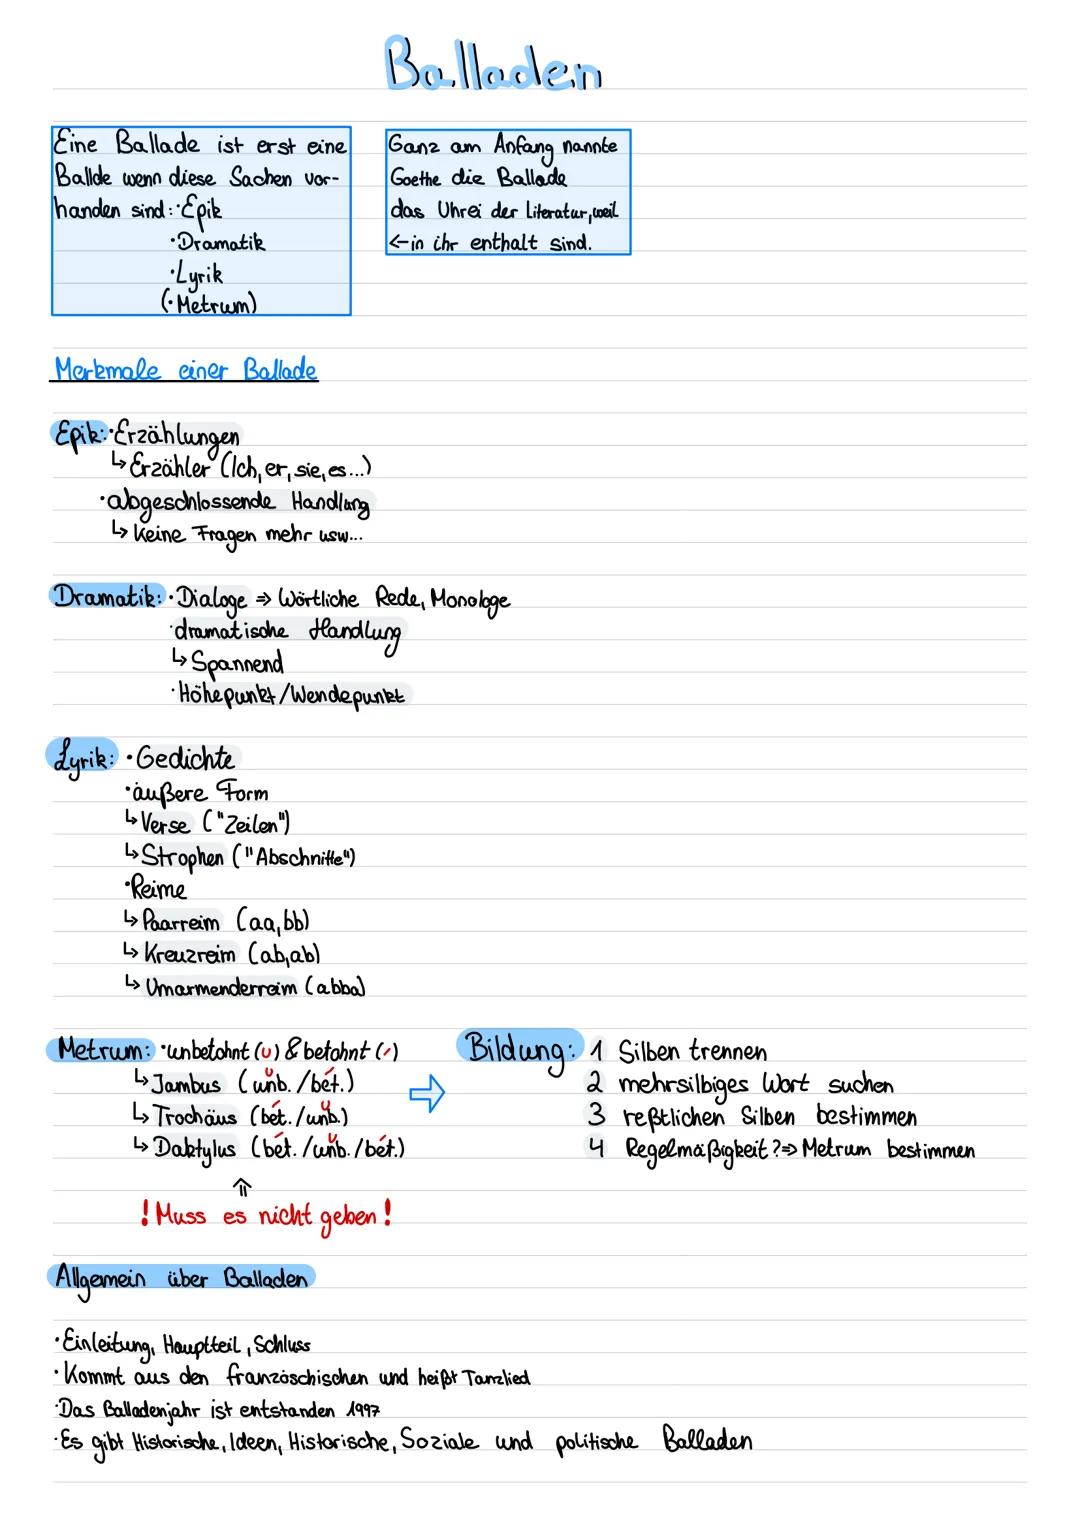 Balladen
Eine Ballade ist erst eine
Ballde wenn diese Sachen vor-
handen sind: · Epik
· Dramatik
· Lyrik
(· Metrum)
Ganz am Anfang nannte
Goethe die Ballade
das Uhrei der Literatur, weil
← in ihr enthalt sind.
Merkmale einer Ballade
Epik: · Erzählungen
↳ Erzähler (Ich, er, sie, es...)
· abgeschlossende Handlung
↳ Keine Fragen mehr usw...
Dramatik: · Dialoge ⇒ Wörtliche Rede, Monologe
· dramatische Handlung
↳ Spannend
· Höhepunkt/Wendepunkt
Lyrik: · Gedichte
· äußere Form
↳ Verse ("Zeilen")
↳ Strophen ("Abschnitte")
· Reime
↳ Paarreim (aa, bb)
↳ Kreuzreim (ab, ab)
↳ Umarmenderreim (abba)
Metrum: · unbetohnt (∪) & betohnt (/)
↳ Jambus (unb./bet.)
↳ Trochäus (bet./unb.)
↳ Daktylus (bet./unb./bet.)
⇑
! Muss es nicht geben !
⇨
Bildung: 1 Silben trennen
2 mehrsilbiges Wort suchen
3 reßtlichen Silben bestimmen
4 Regelmäßigkeit? ⇒ Metrum bestimmen
Allgemein über Balladen
· Einleitung, Hauptteil, Schluss
· Kommt aus den französchischen und heißt Tanzlied
· Das Balladenjahr ist entstanden 1997
· Es gibt Historische, Ideen, Historische, Soziale und politische Balladen